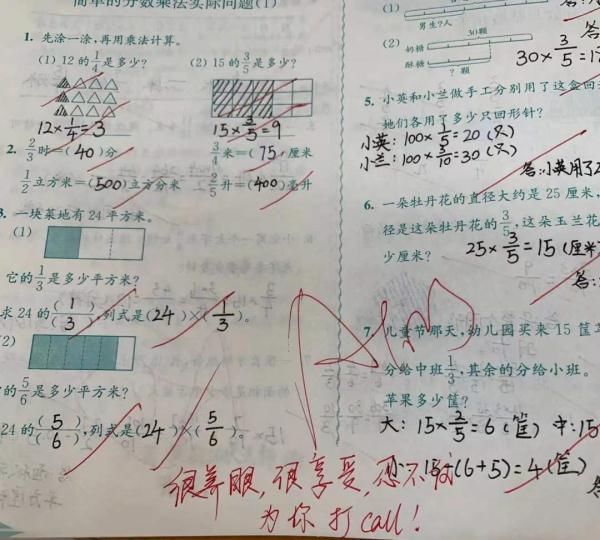 简单的分数乘法实际问题(1)
1. 先涂一涂,再用乘法计算。
(1) 12的1/4是多少? (2) 15的3/5是多少?
12×1/4=3 15×3/5=9
2. 2/3时=(40)分 3/4米=(75)厘米
1/2立方米=(500)立方分米 2/5升=(400)毫升
3. 一块菜地有24平方米。
(1)
它的1/3是多少平方米?
求24的(1/3),列式是(24)×(1/3)。
(2)
的5/6是多少平方米?
24的(5/6),列式是(24)×(5/6)。
(1)
男生?人
(2) 奶糖 30颗
酥糖 ?颗
30×3/5=
5. 小英和小兰做手工分别用了这盒回
她们各用了多少只回形针?
小英:100×1/5=20(只)
小兰:100×3/10=30(只)
答:小英用了
6. 一朵牡丹花的直径大约是25厘米,
径是这朵牡丹花的3/5,这朵玉兰花
少厘米?
25×3/5=15(厘米
答:
7. 儿童节那天,幼儿园买来15筐苹
分给中班1/3,其余的分给小班。
苹果多少筐?
大:15×2/5=6(筐) 中:15
小:15-(6+5)=4(筐)
答
100
很养眼,很享受,忍不住
为你打call!